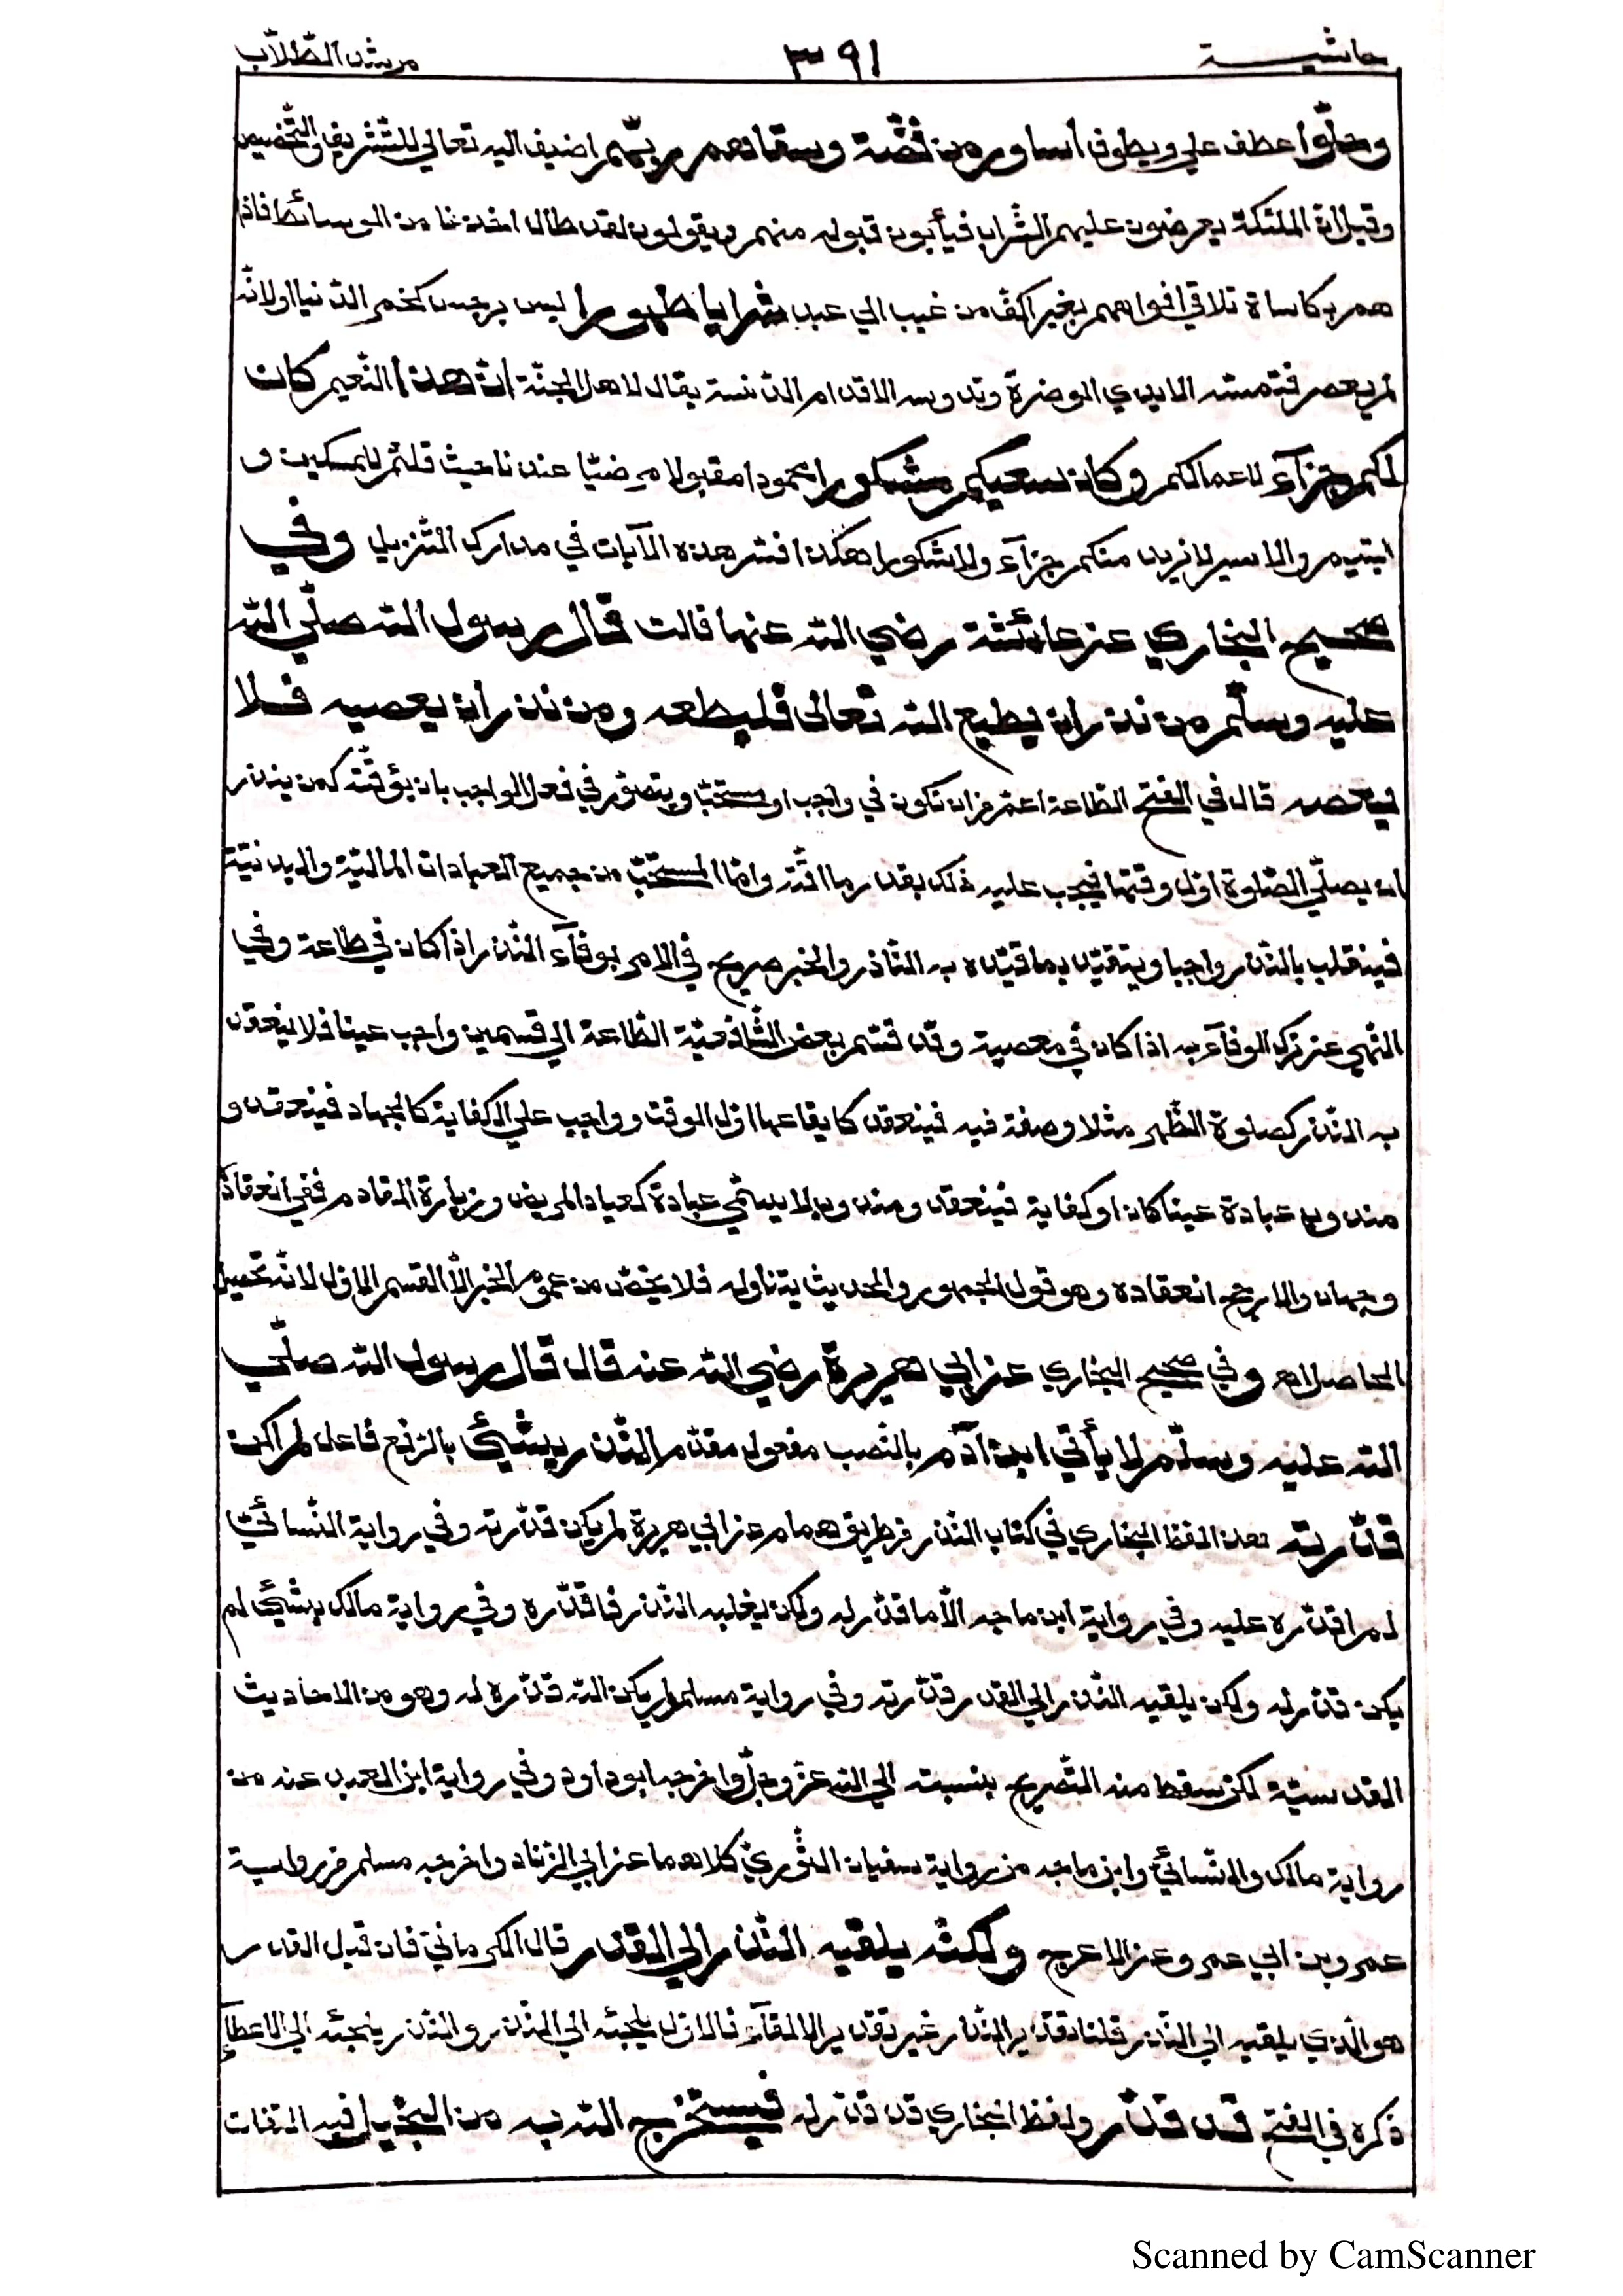 حاشيــة ٣٩١ مرشد الطّلّاب
وحلّوا عطف علي ويطوف اساور من فضّة وسقاهم ربّهم اضيف اليه تعالي للتّشريف والتّخصيص
وقيل انّ الملئكة يعرضون عليهم الشّراب فيأبون قبوله منهم ويقولون لقد طال اخذنا من الوسائط فاذا
هم بكاساة تلاقي افواههم بغير اكفّ من غيب الي عبد شرابا طهورا ليس برجس كخمر الدّنيا او لانّه
لم يعصر فتمسّه الايدي الوضرة وتدوسه الاقدام الدّنسة يقال لاهل الجنّة انّ هذا النّعيم كان
لكم جزآء لاعمالكم وكان سعيكم مشكورا محمودا مقبولا مرضيّا عندنا حيث قلتم للمسكين و
اليتيم والاسير لا نريد منكم جزآء ولا شكورا هكذا فسّر هذه الآيات في مدارك التّنزيل وفي
صحيح البخاري عن عائشة رضي اللّه عنها قالت قال رسول اللّه صلّي اللّه
عليه وسلّم من نذر ان يطيع اللّه تعالى فليطعه ومن نذر ان يعصيه فلا
يعصه قال في الفتح الطّاعة اعمّ من ان تكون في واجب او مستحبّ ويتصوّر في فعل الواجب بان يؤقّته كمن ينذر
ان يصلّي الصّلوة اوّل وقتها فيجب عليه ذلك بقدر ما اقّته وامّا المستحبّ من جميع العبادات الماليّة والبدنيّة
فينقلب بالنّذر واجبا ويتقيّد بما قيّده به النّاذر والخبر صريح في الامر بوفآء النّذر اذا كان في طاعة وفي
النّهي عن ترك الوفآء به اذا كان في معصية وقد قسّم بعض الشّافعيّة الطّاعة الي قسمين واجب عينا فلا ينعقد
به النّذر كصلوة الظّهر مثلا وصفة فيه فينعقد كايقاعها اوّل الوقت وواجب علي الكفاية كالجهاد فينعقد و
مندوب عبادة عينا كان او كفاية فينعقد ومندوب لا يسمّي عبادة كعيادالمريض وزيارة القادم ففي انعقاده
وجهان والارجح انعقاده وهو قول الجمهور والحديث يتناوله فلا يخصّ من عموم الخبر الّا القسم الاوّل لانّه تحصيل
الحاصل اهـ وفي صحيح البخاري عن ابي هريرة رضي اللّه عنه قال قال رسول اللّه صلّي
اللّه عليه وسلّم لا يأتي ابن آدم بالنّصب مفعول مقدّم النّذر بشئ بالرّفع فاعل لم اكن
قدّرته هذا لفظ البخاري في كتاب النّذر من طريق همام عن ابي هريرة لم يكن قدّرته وفي رواية النّسائيّ
لم اقدّره عليه وفي رواية ابن ماجه الّا ما قدّر له ولكن يغلبه النّذر فاقدّره وفي رواية مالك بشئ لم
يكن قدّر له ولكن يلقيه النّذر الي القدر قدّرته وفي رواية مسلم لم يكن اللّه قدّره له وهو من الاحاديث
القدسيّة لكن سقط منه التّصريح بنسبته الي اللّه عزّ وجلّ واخرجه ابوداود وفي رواية ابن العبد عنه من
رواية مالك والنّسائيّ وابن ماجه من رواية سفيان الثّوريّ كلاهما عن ابي الزّناد واخرجه مسلم من روايــة
عمرو بن ابي عمرو عن الاعرج ولكنّه يلقيه النّذر الي القدر قال الكرمانيّ فان قيل القدر
هو الّذي يلقيه الي النّذر قلنا تقدير النّذر غير تقدير الالقآء فالاوّل يلجئه الي النّذر والنّذر يلجئه الي الاعطآء
ذكره في الفتح قد قدّر ولفظ البخاري قد قدّر له فيستخرج اللّه به من البخيل فيه التفات
Scanned by CamScanner